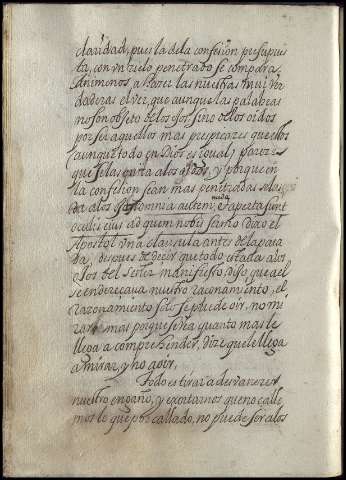 claridad, pues la de la confesion presupues
ta, con vn zielo penetrado se compara.
Animonos a hazer las nuestras mui ver
daderas el ver, que aunque las palabras
no son objeto de los ojos, sino de los oidos
por ser aquellos mas perspicazes que ellos
aunque todo en Dios es igual; parece
que se las quita a los oydos, y porque en
la confesion sean mas penetradas se las
da a los ojos omnia autem nuda, et aperta sunt
oculis eius ad quem nobis sermo dixo el
Apostol vna clausula antes de la pasa
da, despues de decir que todo estaua a los
ojos del Señor manifiesto, dijo que a el
se endereçaua nuestro raconamiento, el
razonamiento solo se puede oir, no mi
rar mas porque se vea quanto mas le
llega a comprehender, dize que le llega
a mirar, y no a oir.
Todo es tirar a desvanecer
nuestro engaño, y exortarnos que no calle
mos lo que por callado, no puede ser a los